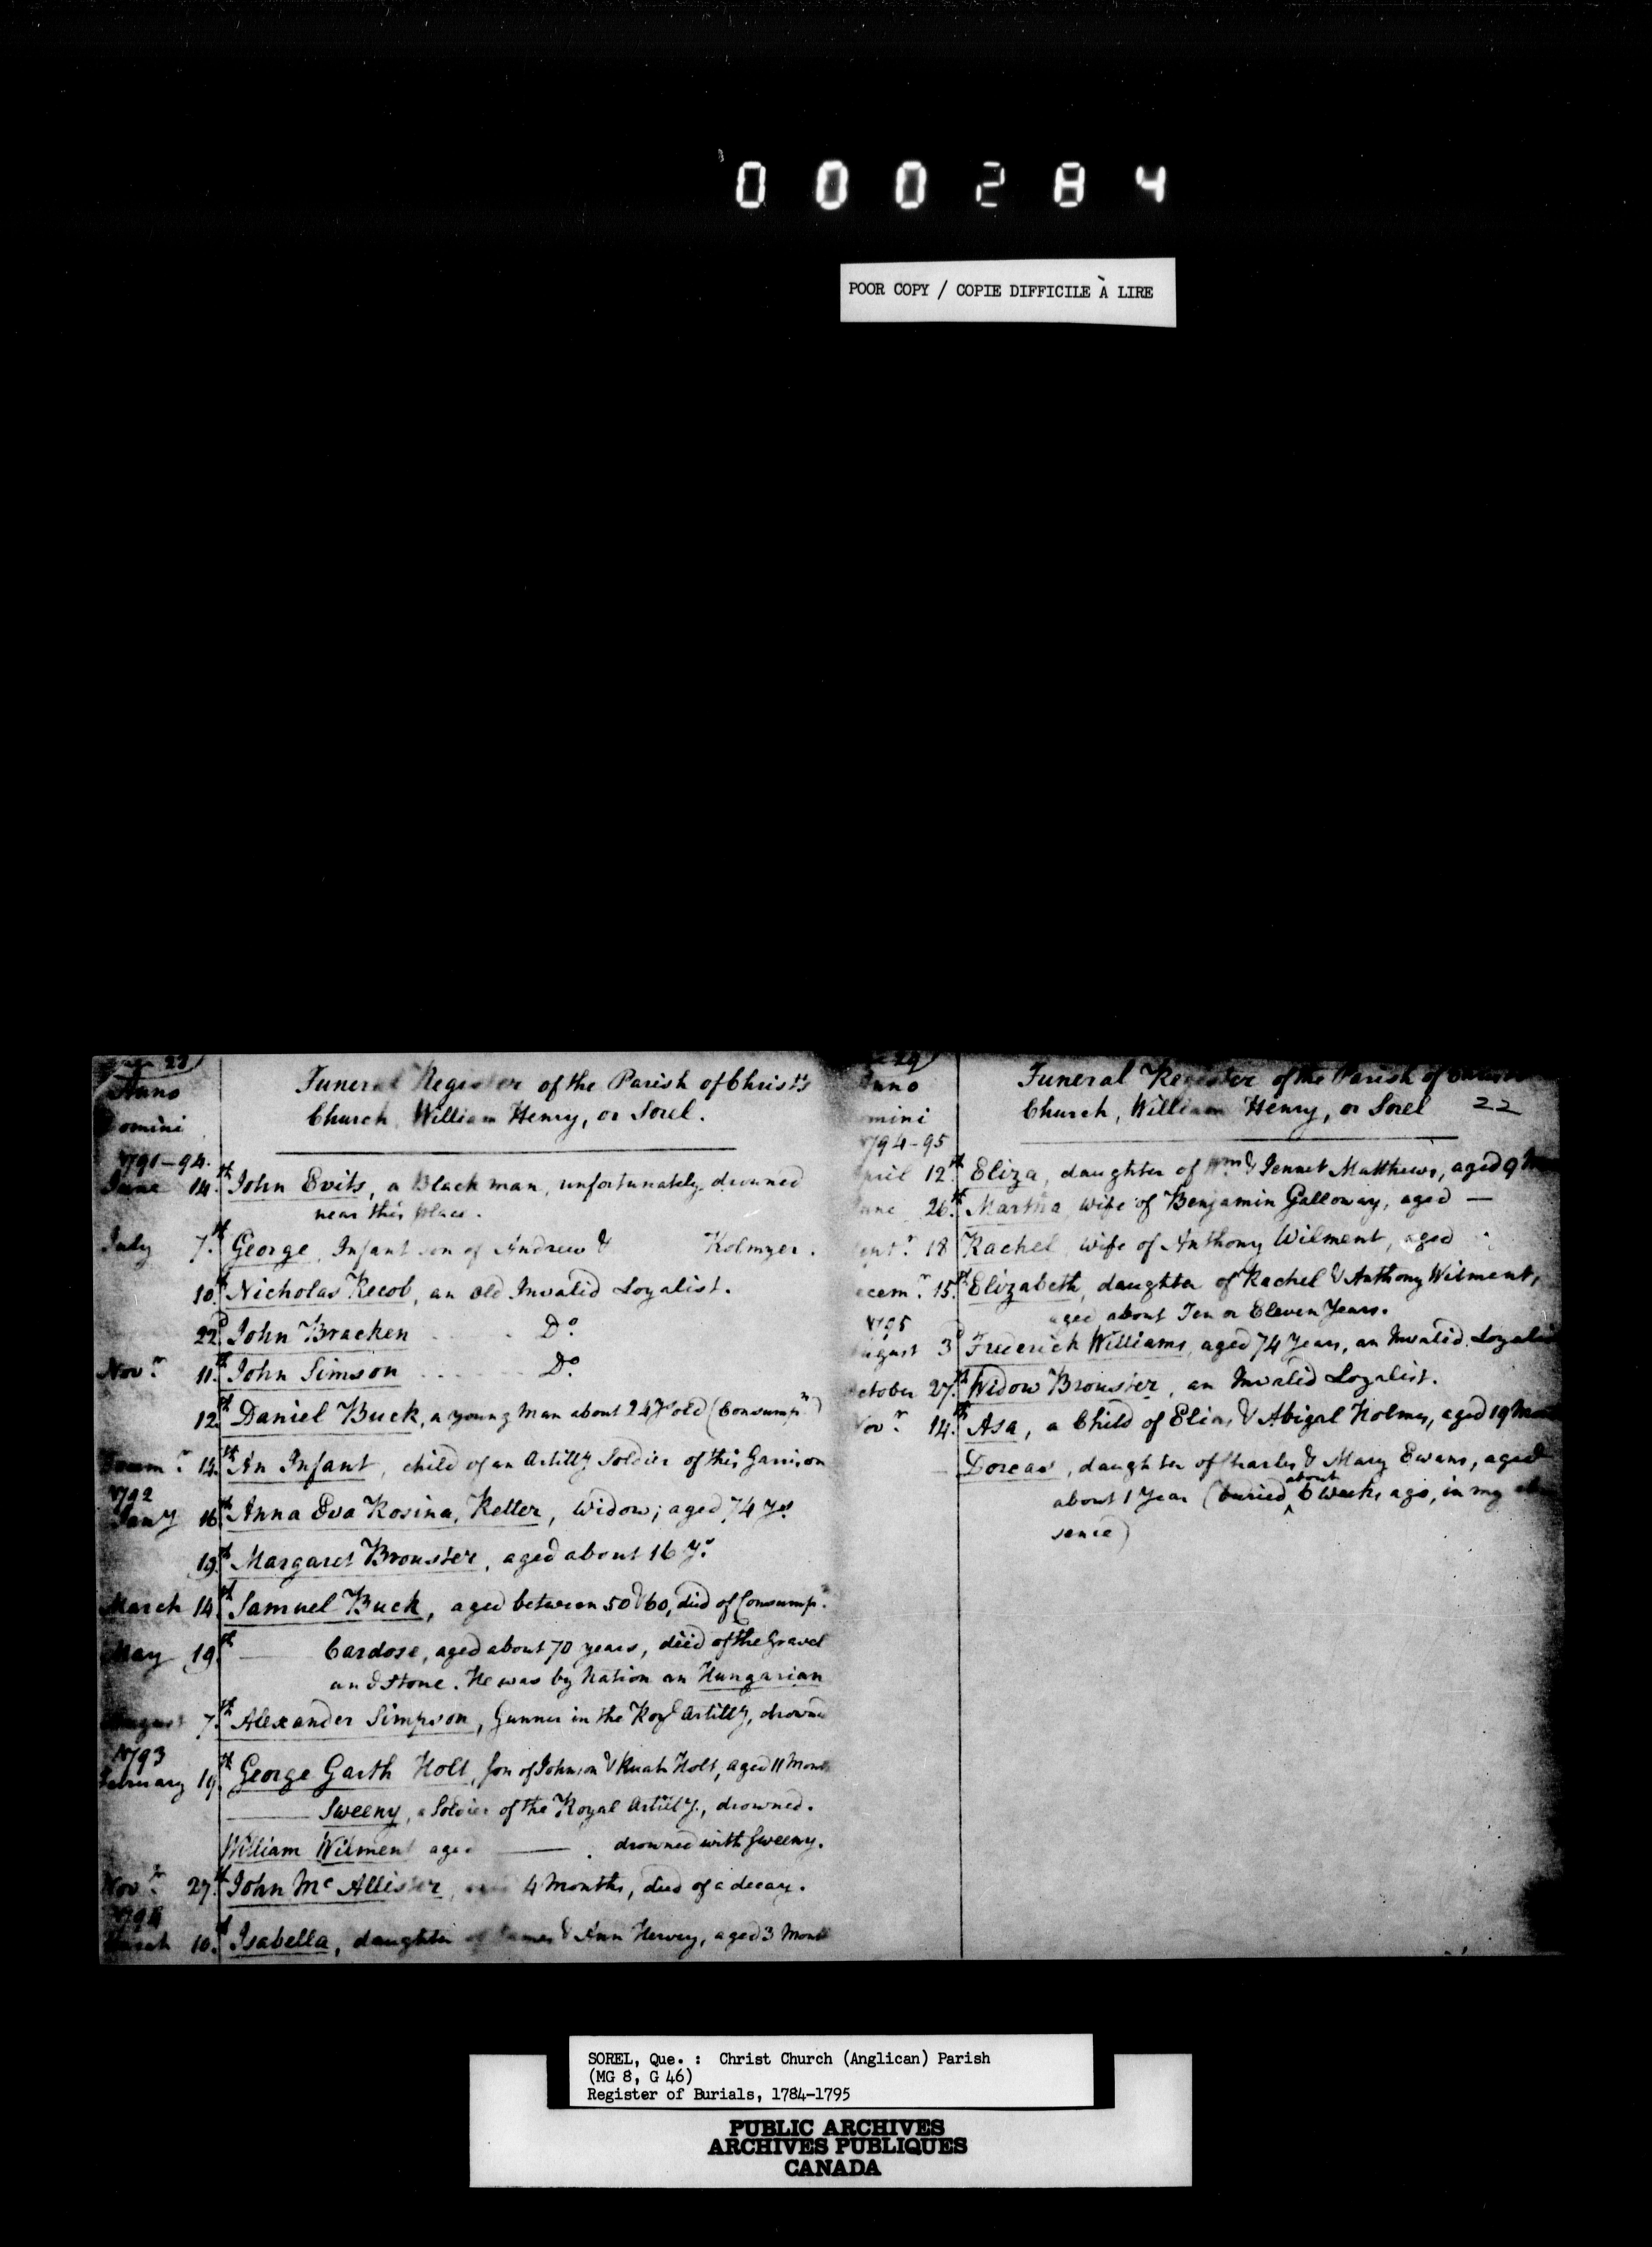 000284
POOR COPY / COPIE DIFFICILE À LIRE
page 23)
Anno
Domini
Funeral Register of the Parish of Christ's
Church, William Henry, or Sorel.
1791-94.
June 14th John Evits, a Black man, unfortunately drowned
near this place.
July 7th George, Infant son of Andrew & Kolmyer.
10th Nicholas Recob, an old Invalid Loyalist.
22d John Bracken Do
Novr 11th John Simson Do
12th Daniel Buck, a young man about 24 Ys old (Consumpn)
Decemr 14th An Infant, child of an Artilly Soldier of this Garrison
1792
Jany 16th Anna Eva Rosina, Ketter, Widow; aged 74 Ys
19th Margaret Brouster, aged about 16 Ys
March 14th Samuel Buck, aged between 50 & 60, died of Consumpn
May 19th — Cardose, aged about 70 years, died of the Gravel
and Stone. He was by Nation an Hungarian
August 7th Alexander Simpson, Gunner in the Royl Artilly, drowned
1793
February 19th George Garth Holt, Son of Johnson & Ruah Holt, aged 11 Months
— Sweeny, a Soldier of the Royal Artilly, drowned.
William Wilment aged — . drowned with Sweeny.
Novr 27th John McAllister, aged 4 Months, died of a decay.
1794
March 10th Isabella, daughter of James & Ann Hervey, aged 3 Month
24)
Anno
mini
Funeral Register of the Parish of Christ's
Church, William Henry, or Sorel 22
1794-95
April 12th Eliza, daughter of Wm & Jennet Matthews, aged 9
June 26th Martha, wife of Benjamin Galloway, aged —
Septr 18 Rachel, wife of Anthony Wilment, aged
ecemr 15th Elizabeth, daughter of Rachel & Anthony Wilment,
aged about Ten or Eleven Years.
1795
August 3d Frederick Williams, aged 74 Years, an Invalid Loyalist
October 27th Widow Brouster, an Invalid Loyalist.
Novr 14th Asa, a Child of Elias & Abigal Holmes, aged 19 Mon
— Dorcas, daughter of Charles & Mary Ewans, aged
about 1 Year (buried about 6 weeks ago, in my ab
sence)
SOREL, Que. : Christ Church (Anglican) Parish
(MG 8, G 46)
Register of Burials, 1784-1795
PUBLIC ARCHIVES
ARCHIVES PUBLIQUES
CANADA